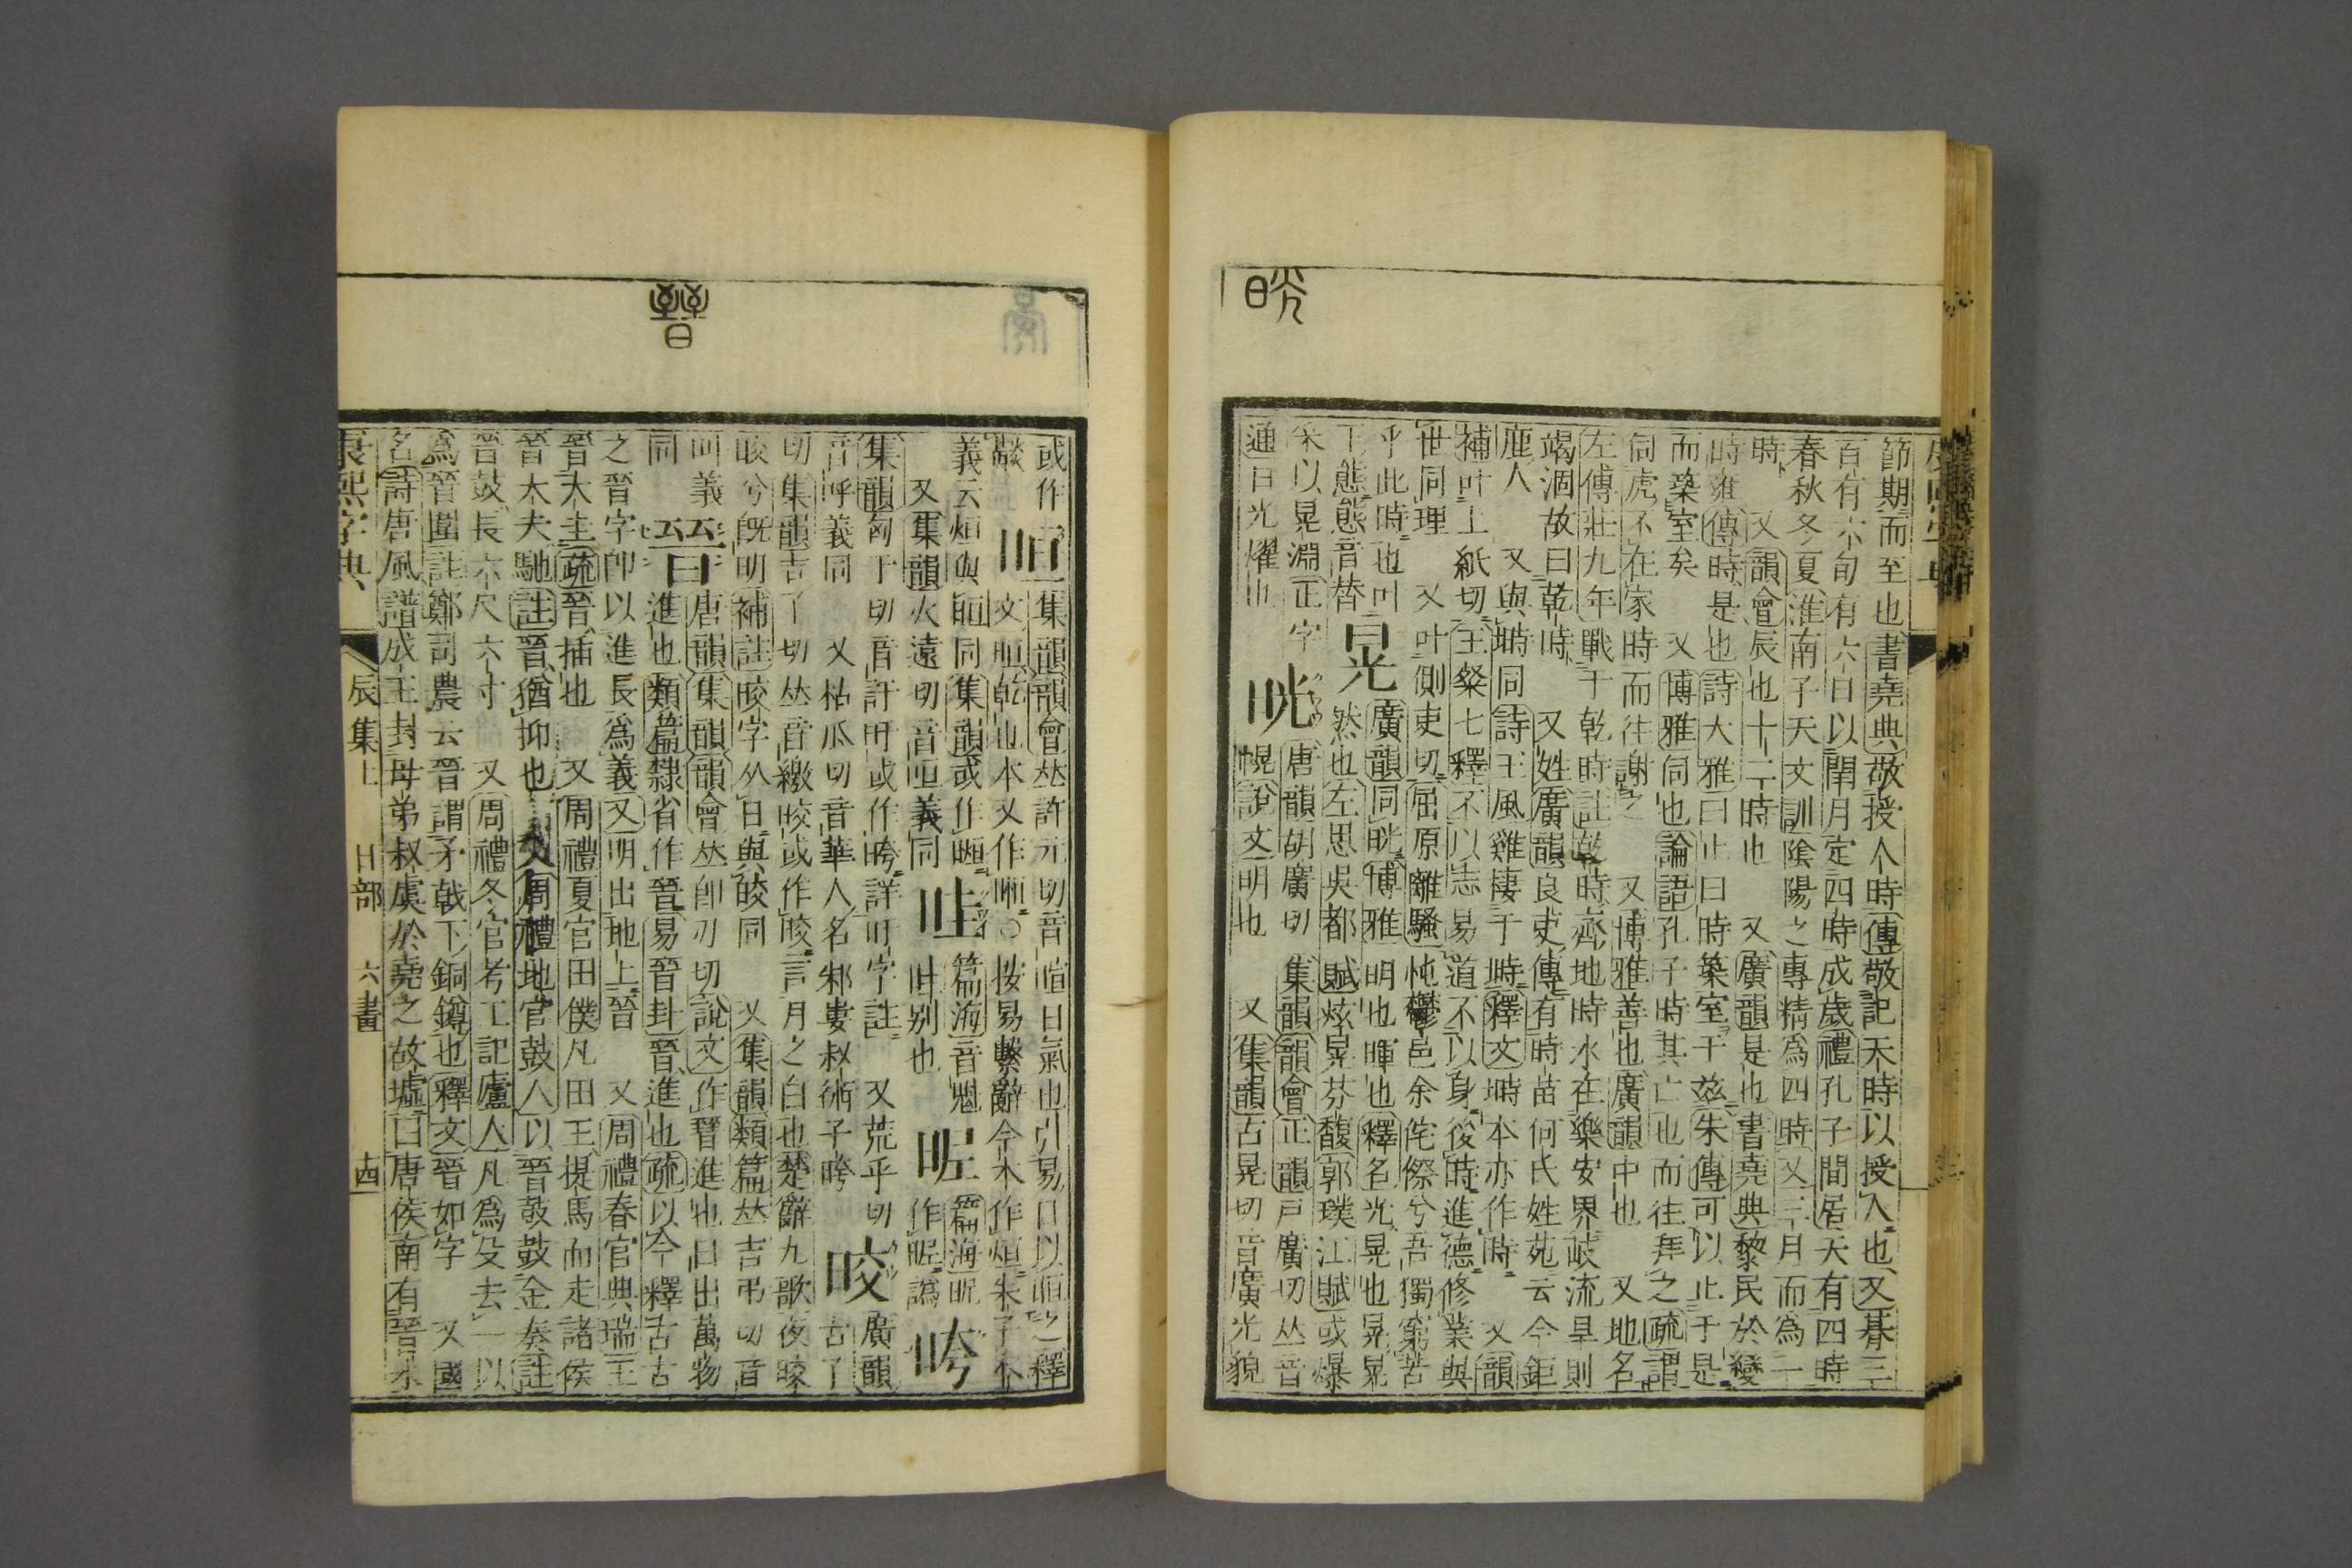 節期而至也書堯典敬授人時傳敬記天時以授人也又朞三
百有六旬有六日以閏月定四時成歲禮孔子閒居天有四時
春秋冬夏淮南子天文訓陰陽之專精為四時又三月而為一
時 又韻會辰也十二時也 又廣韻是也書堯典黎民於變
時雍傳時是也詩大雅曰止曰時築室于兹朱傳可以止于是
而築室矣 又博雅伺也論語孔子時其亡也而往拜之疏謂
伺虎不在家時而往謝之 又博雅善也廣韻中也 又地名
左傳莊九年戰于乾時註乾時齊地時水在樂安界岐流旱則
竭涸故曰乾時 又姓廣韻良吏傳有時苗何氏姓苑云今鉅
鹿人 又與塒同詩王風雞棲于塒釋文塒本亦作時 又韻
補叶上紙切王粲七釋不以志易道不以身後時進德修業與
世同理 又叶側吏切屈原離騷忳鬱邑余侘傺兮吾獨窮苦
乎此時也叶
下態態音替
晃
廣韻同晄博雅明也暉也釋名光晃也晃晃
然也左思吳都賦炫晃芬馥郭璞江賦或爆
采以晃淵正字
通日光燿也
晄
唐韻胡廣切集韻韻會正韻戸廣切𠀤音
幌說文明也 又集韻古晃切音廣光貌
晄
或作
㬉
晅
集韻韻會𠀤許元切音暄日氣也引易日以晅之釋
文晅乾也本又作㫰○按易繫辭今本作烜朱子本
義云烜與晅同集韻或作㬇
又集韻火遠切音咺義同
畦
篇海音魁
畦别也
昵
篇海昵
作昵譌
晇
集韻匈于切音訏吁或作晇詳吁字註 又荒乎切
音呼義同 又枯瓜切音華人名邾婁叔術子晇
晈
廣韻古了
切集韻吉了切𠀤音繳晈或作晈言月之白也楚辭九歌夜晈
晈兮旣明補註晈字从日與皎同 又集韻類篇𠀤吉弔切音
叫義
同
晉
唐韻集韻韻會𠀤卽刃切說文作𣈆進也日出萬物
進也類篇隸省作晉易晉卦晉進也疏以今釋古古
之晉字卽以進長為義又明出地上晉 又周禮春官典瑞王
晉大圭疏晉插也 又周禮夏官田僕凡田王提馬而走諸侯
晉大夫馳註晉猶抑也 又周禮地官鼓人以晉鼓鼓金奏註
晉鼓長六尺六寸 又周禮冬官考工記廬人凡為殳去一以
為晉圍註鄭司農云晉謂矛戟下銅鐏也釋文晉如字 又國
名詩唐風譜成王封母弟叔虞於堯之故墟曰唐侯南有晉水
晉
康熙字典 辰集上 日部 六畫 十四